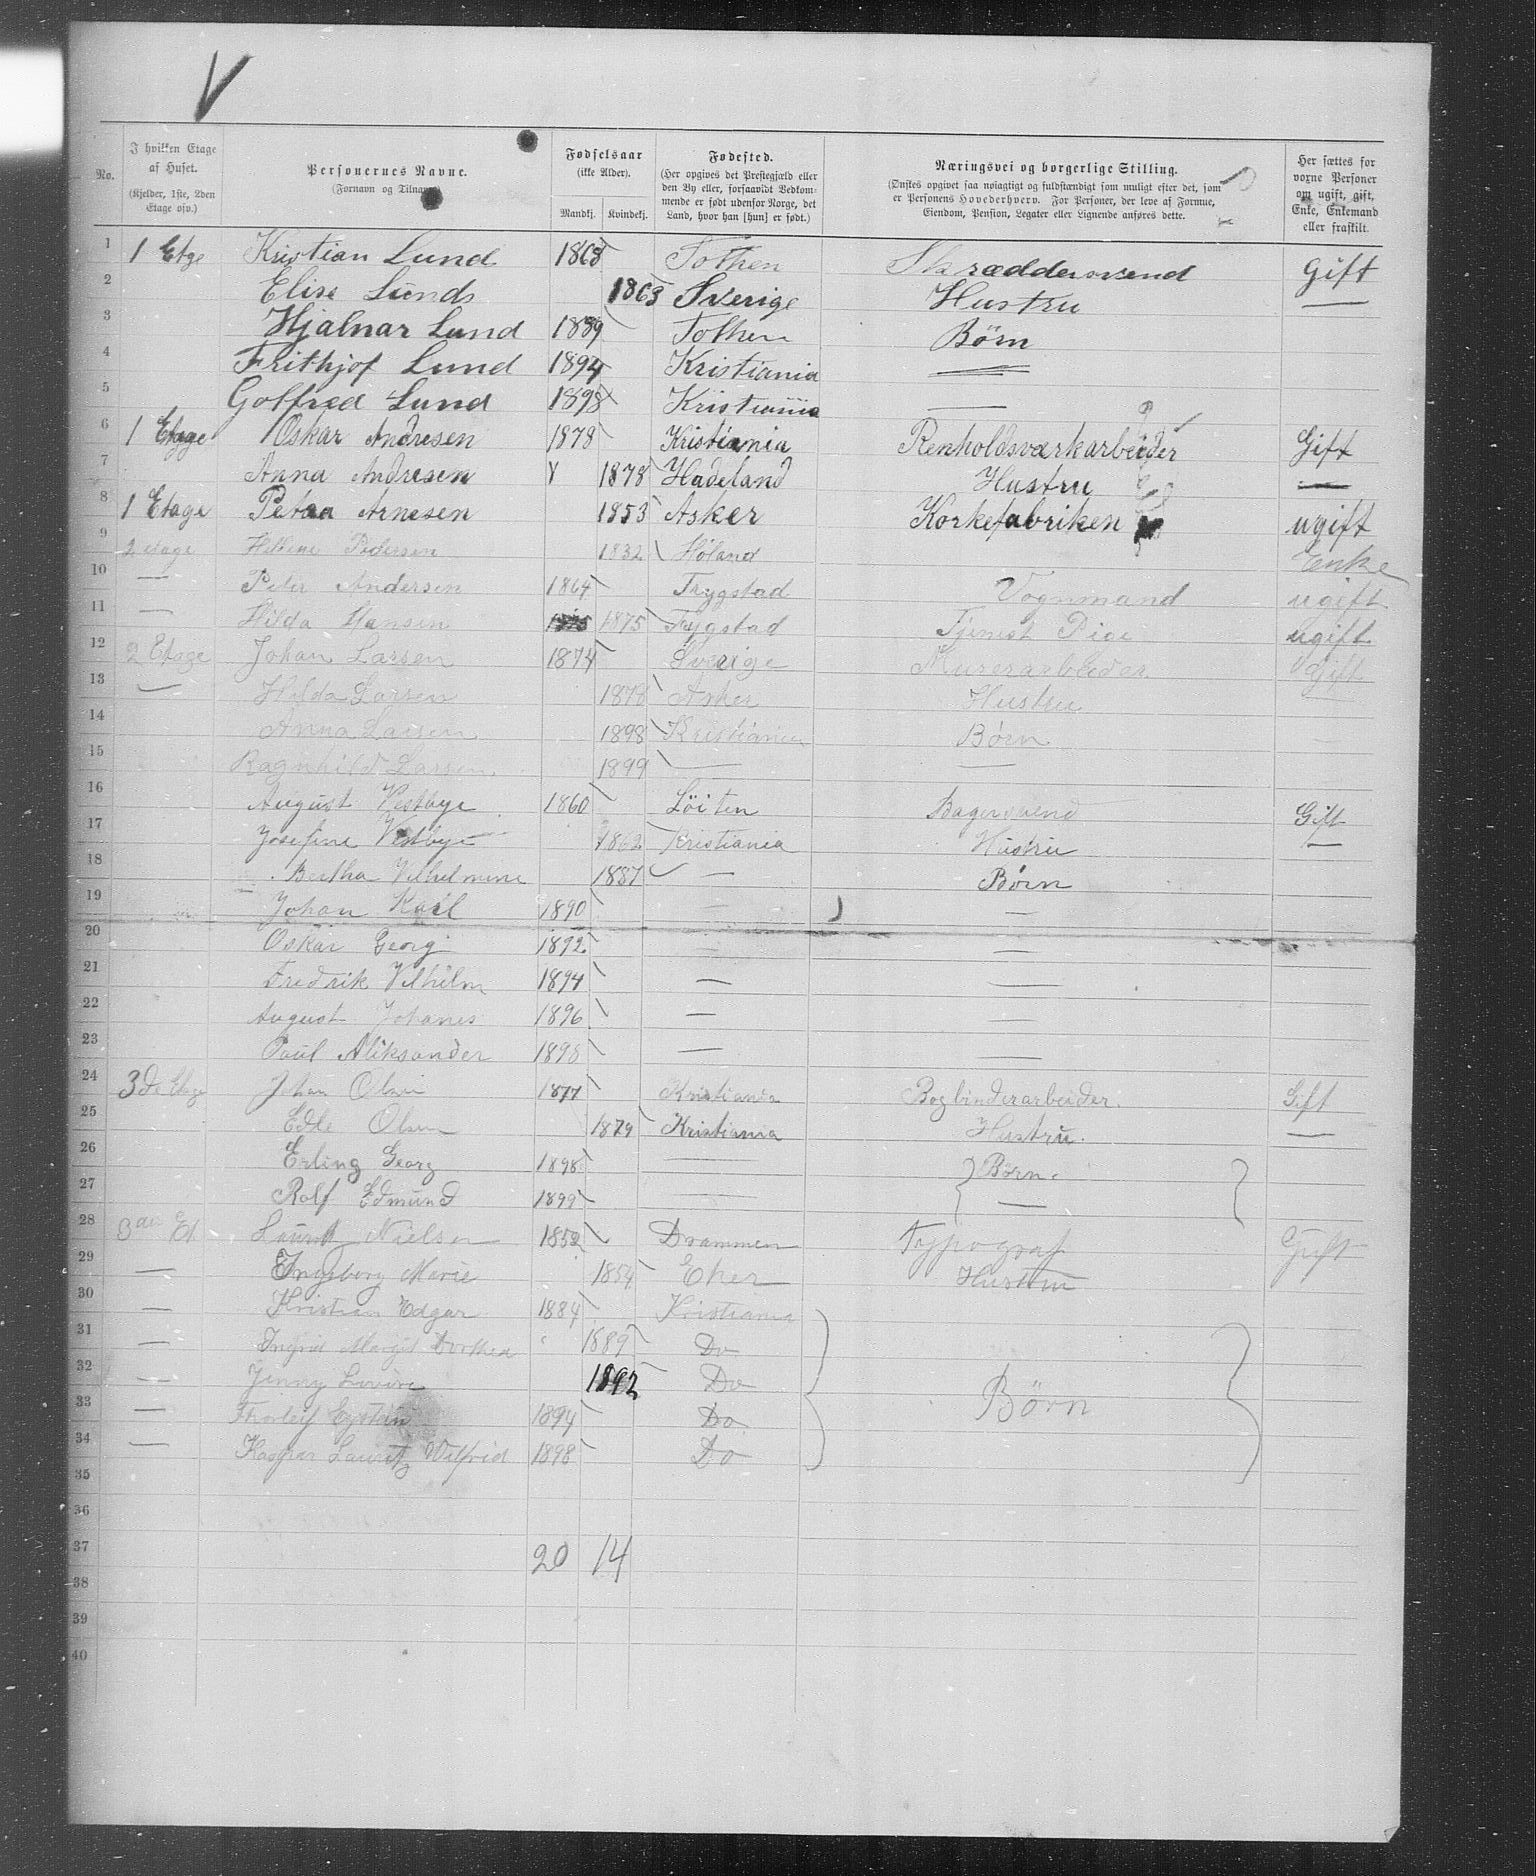 V
No. | I hvilken Etage af Huset. (Kjelder, 1ste, 2den Etage osv.) | Personernes Navne. (Fornavn og Tilnavn) | Fødselsaar (ikke Alder). Mandkj. Kvindekj. | Fødested. (Her opgives det Prestegjæld eller den By eller, forsaavidt Vedkommende er født udenfor Norge, det Land, hvor han [hun] er født.) | Næringsvei og borgerlige Stilling. (Ønskes opgivet saa nøiagtigt og fuldstændigt som muligt efter det, som er Personens Hovederhverv. For Personer, der leve af Formue, Eiendom, Pension, Legater eller Lignende anføres dette. | Her sættes for voxne Personer om ugift, gift, Enke, Enkemand eller fraskilt.
1 1 Etge Kristian Lund 1868 Tothen Skrædder Gift
2 Elise Lunds 1863 Sverige Hustru —
3 Hjalnar Lund 1889 Tothen Børn
4 Frithjof Lund 1894 Kristiania —
5 Gotfred Lund 1898 Kristiania —
6 1 Etage Oskar Andresen 1878 Kristiania Renholdsværkarbeider Gift
7 Anna Andresen 1878 Hadeland Hustru —
8 1 Etage Petra Arnesen 1853 Asker Korkefabriken ugift
9 2 etage Pedersen 1832 Høland Enke
10 — Peter Andersen 1864 Trygstad Vognmand ugift
11 — Hilda Hansen 1875 Trygstad Tjenest Pige ugift
12 2 Etage Johan Larsen 1874 Sverige Murerarbeider Gift
13 — Hilda Larsen 1878 Asker Hustru
14 Anna Larsen 1898 Kristiania Børn
15 Ragnhild Larsen 1899 — —
16 August Vestbye 1860 Löiten Bagersvend Gift
17 Josefine Vestbye 1862 Kristiania Hustru —
18 Bertha Vilhelmine 1887 — Børn
19 Johan Karl 1890 — —
20 Oskar Georg 1892 — —
21 Fredrik Vilhelm 1894 — —
22 August Johanes 1896 — —
23 Paul Aliksander 1898 — —
24 3de Etage Johan Olsen 1877 Kristiania Bogbinderarbeider. Gift
25 Edle Olsen 1879 Kristiania Hustru. —
26 Erling Georg 1898 — Børn.
27 Rolf Edmund 1899 — —
28 Nielsen 1852 Drammen Typograf Gift
29 — Ingeborg Marie 1854 Eker Hustru
30 — Kristian Edgar 1884 Kristiania
31 — Ingrid Margit Dorthea 1889 Do
32 — Jenny 1892 Do Børn
33 — Thorleif Eystein 1894 Do
34 — Kaspar Lauritz Wilfrid 1898 Do
35
36
37 20 14
38
39
40